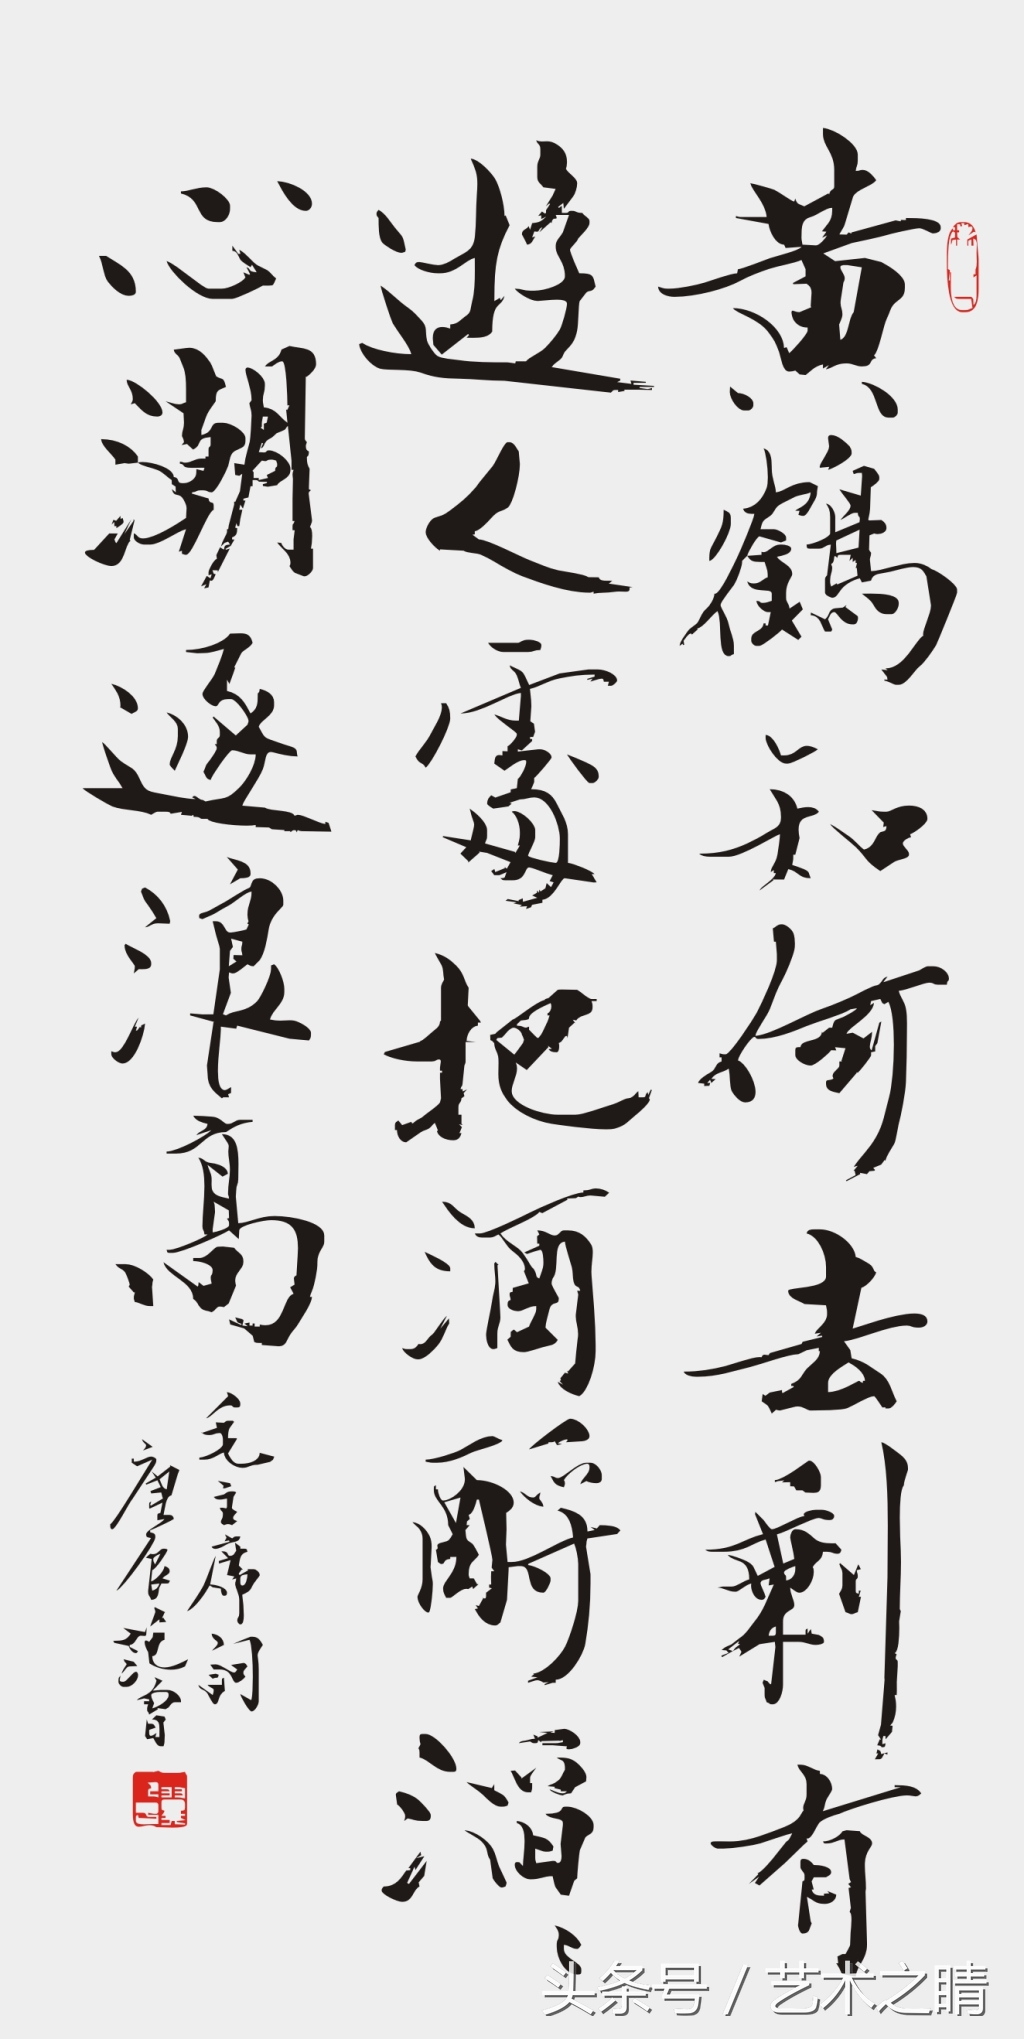 黄鶴知何去剩有
遊人處把酒酹滔〻
心潮逐浪高
毛主席詞
庚辰范曾
头条号 / 艺术之晴